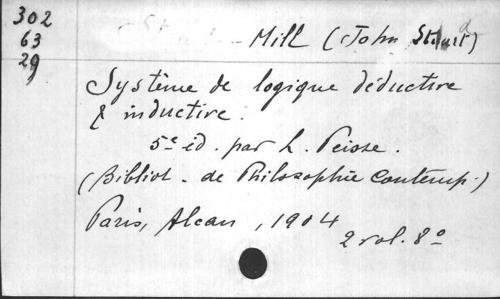 302
63
29
Mill (John Stuart)
Système de logique déductive
& inductive.
5e éd. par L. Peisse.
(Bibliot. de Philosophie Contemp.)
Paris, Alcan, 1904
2 vol. 8o